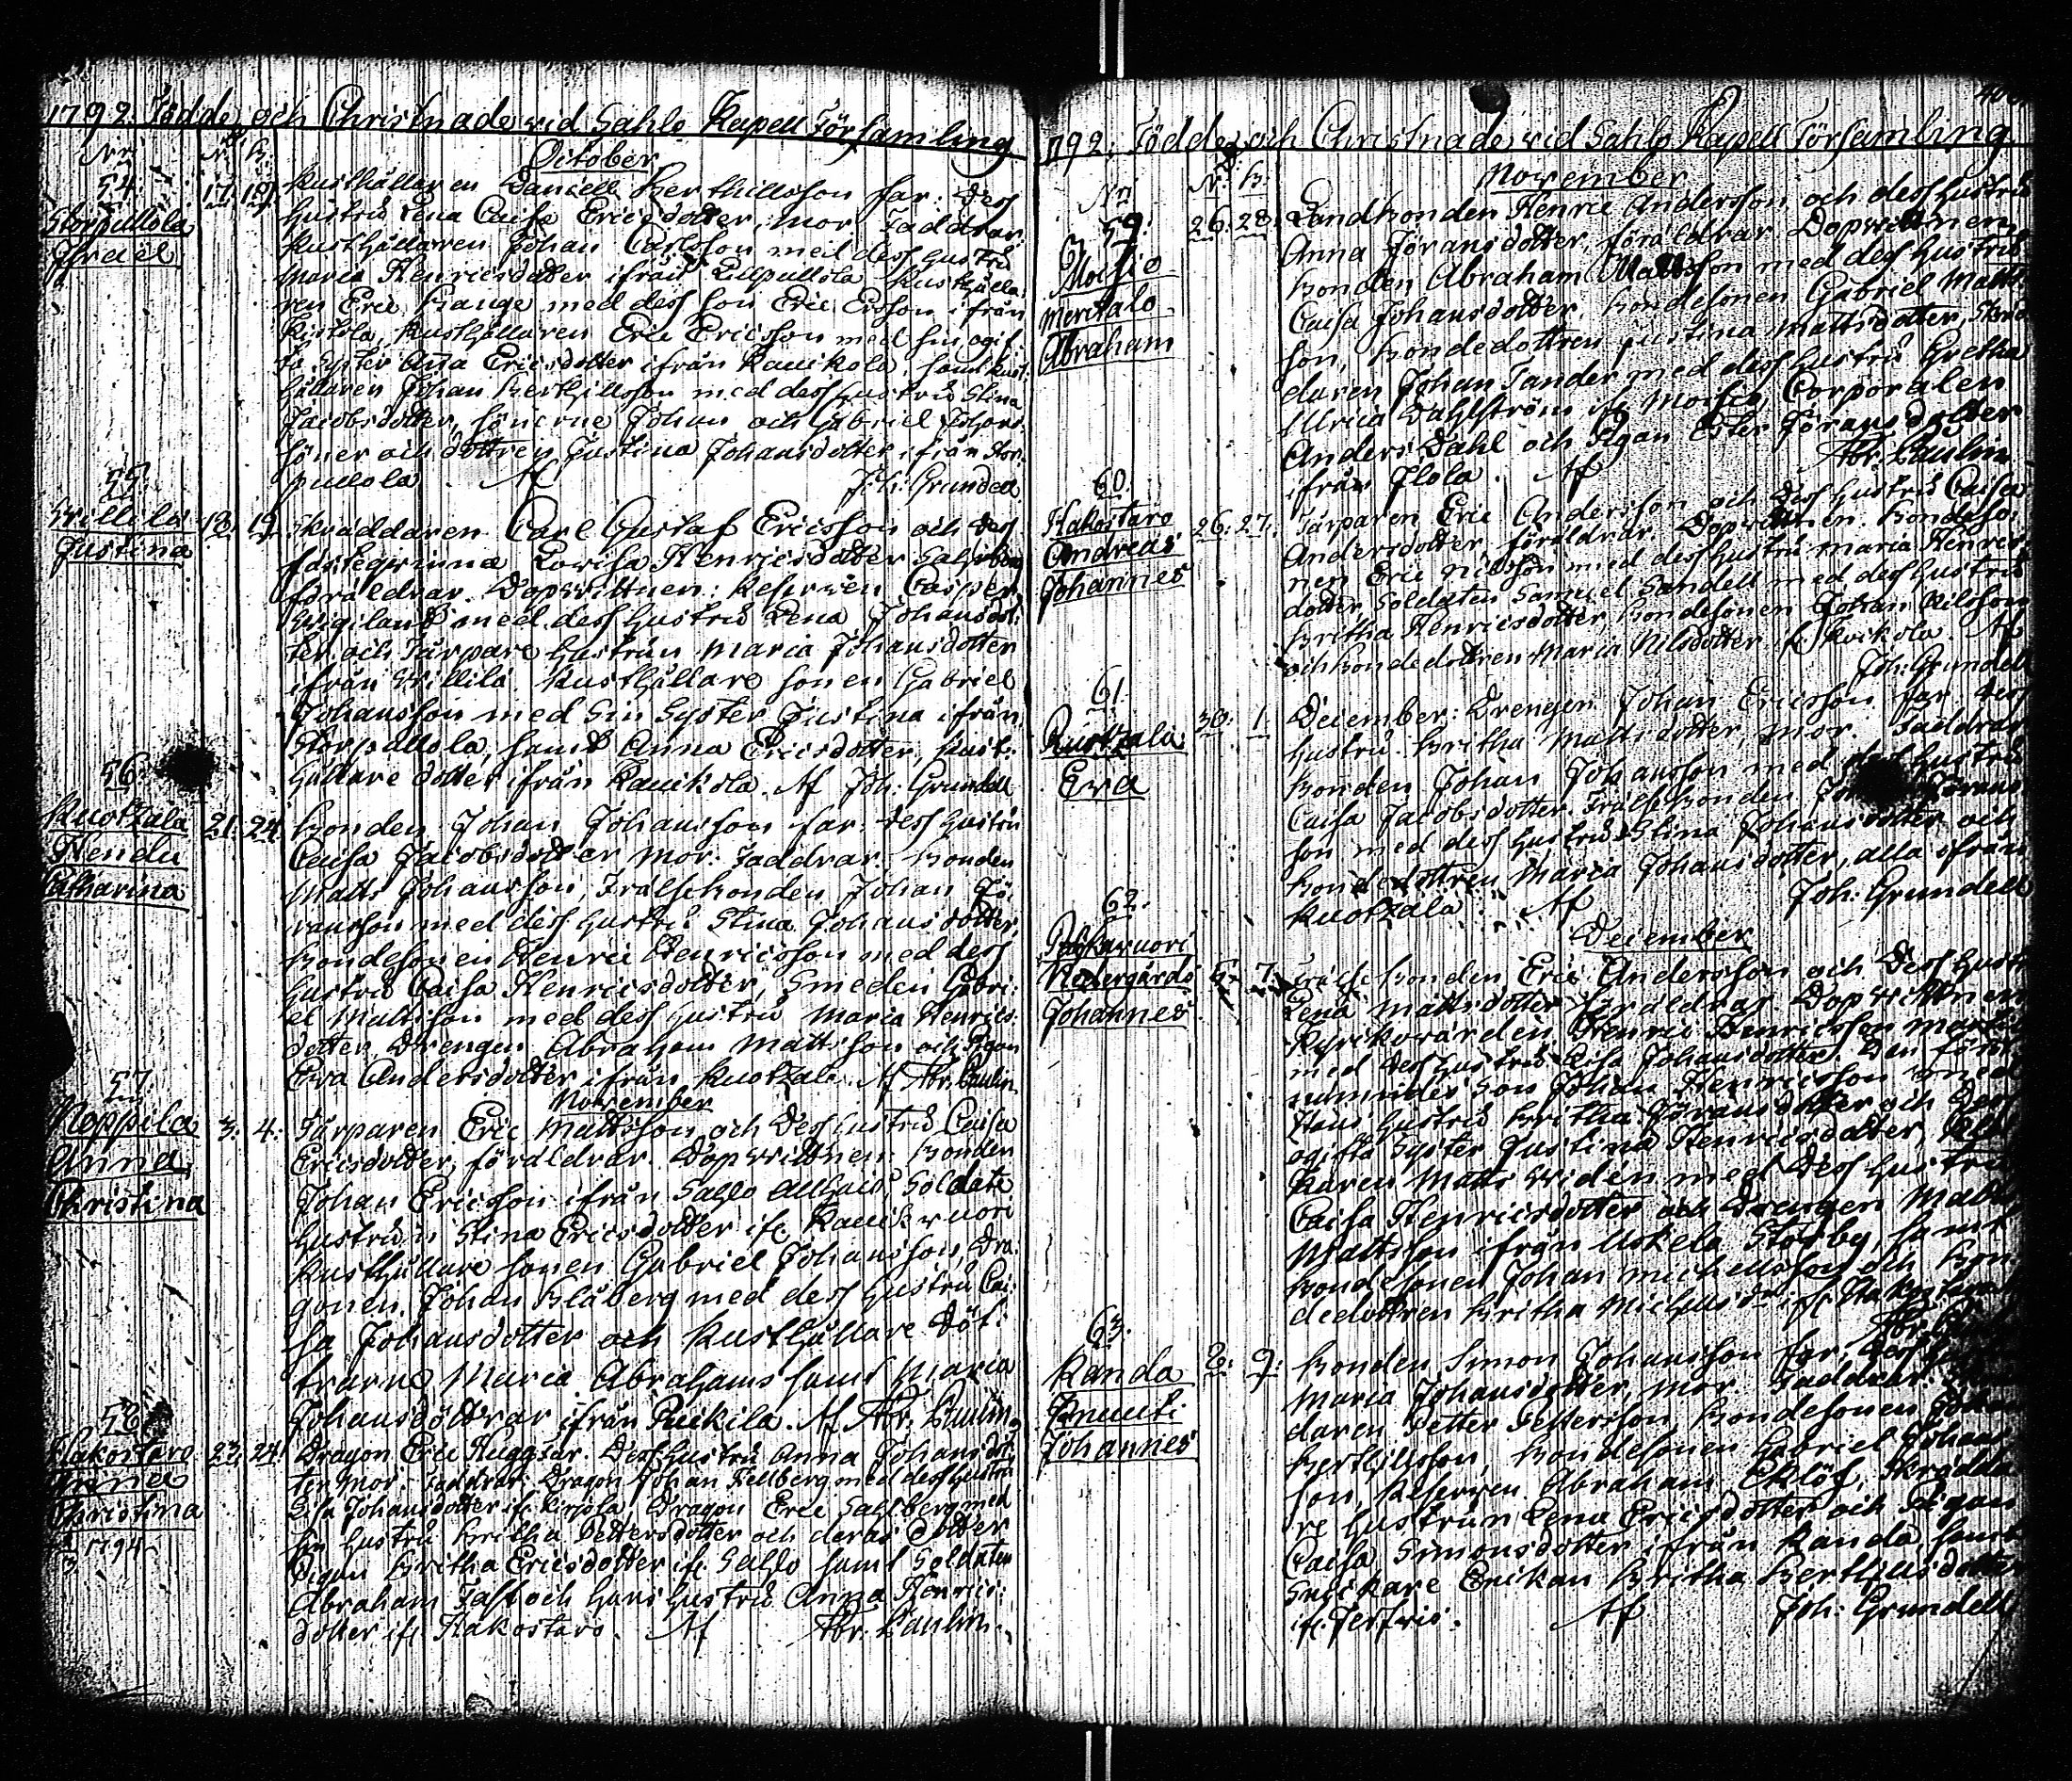 1792. Födde och Christnade vid Sahlo Kapell Församling
Nr. N. b.
October
54. 17. 19. Rusthållaren Daniell Berthillsson far: Dess
Storpullola hustru Lena Caisa Ericsdotter, Mor. Faddrar:
Israel Rusthållaren Johan Carlsson med dess hustru
Maria Henricsdotter ifrån Lillpullola Rusthålla-
ren Eric Hauge med dess son Eric Ersson ifrån
Rusthållaren Eric Ericsson med sin ogif-
ta Syster Anna Ericsdotter ifrån Kauikola, samt Rust-
hållaren Johan Berthillsson med dess hustru Stina
Jacobsdotter, sönerne Johan och Gabriel Johans-
söner och dottren Justina Johansdotter ifrån Stor-
pullola Af Joh: Grundell
55.
Willilä 18. 19. Skräddaren Carl Gustaf Ericsson och dess
Justina fästeqvinna Lovisa Henricsdotter Sahlberg
föräldrar. Dopvittnen: Reserven Casper
Wigiland med dess hustru Lena Johansdot-
ter och Tårpare hustrun Maria Johansdotter
ifrån Willilä. Rusthållare sonen Gabriel
Johansson med Sin Syster Justina ifrån
Storpullola, samt Anna Ericsdotter, Rust-
hållare dotter ifrån Kauikola. Af Joh: Grundell
56.
Kuotzala 21. 24. Bonden Johan Johansson far: dess hustru
Hendu Caisa Jacobsdotter mor: Faddrar: Bonden
Catharina Matts Johansson, Frälsebonden Johan Jö-
ransson med dess hustru Stina Johansdotter,
Bondesonen Henric Henricsson med dess
hustru Caisa Henricsdotter, Smeden Gabri-
el Mattsson med dess hustru Maria Henrics-
dotter, Drengen Abraham Mattsson och Pigan
Eva Andersdotter ifrån Kuotzala. Af Abr. Paulin
November
57.
Noppila 3. 4. Tårparen Eric Mattsson och Dess hustru Caisa
Anna Ericsdotter, föräldrar. Dopvittnen: Bonden
Christina Johan Ericsson ifrån Sahlo Allhais, Soldate
hustrun Stina Ericsdotter ifr. Kauikvuori
Rusthållare sonen Gabriel Johansson, Dra-
gonen Johan Blåberg med dess hustru Cai-
sa Johansdotter och Rusthållare Döt-
trarne Maria Abrahams samt Maria
Johansdöttrar ifrån Puikila. Af Abr. Paulin
58.
Hakostaro 23. 24. Dragon Eric Huggsar. Dess hustru Anna Johansdot-
Anna ter mor: Faddrar: Dragon Johan Fellberg med dess hustru
Christina Lisa Johansdotter ifr. Dragon Eric Sahlberg med
1794 sin hustru Britha Pettersdotter och deras Dotter
Pigan Britha Ericsdotter ifr. Sahlo samt Soldaten
Abraham Fast och hans hustru Anna Henrics-
dotter ifr. Hakostaro. Af Abr. Paulin.
1792. Födde och Christnade vid Sahlo Kapell Församling
Nr N. b.
November
59. 26. 28. Landbonden Henric Andersson och dess hustru
Moisio Anna Jöransdotter, föräldrar. Dopvittnen:
Meritalo Bonden Abraham Mattsson med dess hustru
Abraham Caisa Johansdotter, Bondesonen Gabriel Matts-
son, Bondedottren Justina Mattsdotter, Skräd-
daren Johan Tander med dess hustru Gretha
Ulrica Dahlström ifr. Moisio, Corporalen
Anders Dahl och Pigan Ester Jöransdotter
ifrån Flola. Af Abr: Paulin
60.
Hakostaro 26. 27. Tårparen Eric Andersson och Dess hustru Caisa
Andreas Andersdotter, föräldrar. Dopvittnen: Bondeso-
Johannes nen Eric Nilsson med dess hustru Maria Henrics-
dotter, Soldaten Samuel Sandell med dess hustru
Britha Henricsdotter, Bondesonen Johan Nilsson
och Bondedottren Maria Nilsdotter if. Kvikola. Af
Joh: Grundell
61.
Kuotzala 30. 1. December: Drengen Johan Ericsson far: Dess
Eva hustru Britha Mattsdotter, mor. Faddrar:
Bonden Johan Johansson med dess hustru
Caisa Jacobsdotter. Frälsebonden Johan Jörans-
son med dess hustru Stina Johansdotter och
Bondedottren Maria Johansdotter, alla ifrån
Kuotzala. Af Joh: Grundell
December
62.
Pitkavuori 6. 7. Frälse bonden Eric Andersson och Dess hustru
Nedergårds Lena Mattsdotter föräldrar Dopvittnen
Johannes Kyrkovärden Henric Henricsson
med dess hustru Lisa Johansdotter. Den förr-
nämndes son Johan Henricsson med
Hans hustru Britha Jöransdotter och Dess
ogifta Syster Justina Henricsdotter,
karen Matts Widen med Dess hustru
Caisa Henricsdotter och Drengen Matts
Mattsson ifrån Uskela Storby, samt
Bondesonen Johan Michellsson och Bon-
dedottren Britha Michelsdr ifr. Hakostaro
Abr: Paulin
63.
Kanda 8. 9. Bonden Simon Johansson far, Dess hustru
Knuuti Maria Johansdotter, mor. Faddrar:
Johannes daren Petter Pettersson, Bondesonen Johan
Berthillsson, Bondesonen Gabriel Johans-
son, Reserven Abraham Eklöf, Skrädda-
re hustrun Lena Ericsdotter och Pigan
Caisa Simonsdotter ifrån Kanda, samt
Snickare Enkan Britha Berthillsdotter
ifr. Af Joh: Grundell